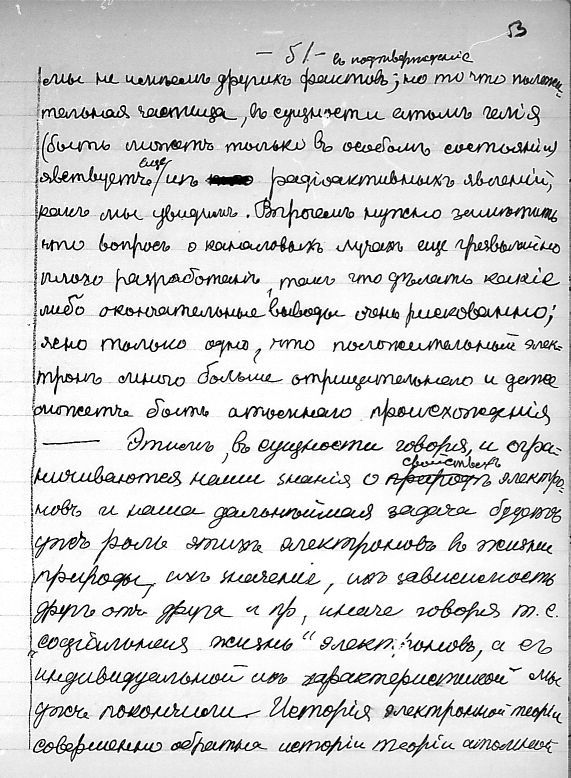 53
— 51 — въ подтвержденіе
мы не имѣемъ другихъ фактовъ; но то что положи-
тельная частица, въ сущности атомъ гелія
(быть можетъ только въ особомъ состояніи)
явствуетъ еще изъ радіоактивныхъ явленій,
какъ мы увидимъ. Впрочемъ нужно замѣтить
что вопросъ о каналовыхъ лучахъ еще чрезвычайно
плохо разработанъ, такъ что дѣлать какіе
либо окончательные выводы очень рискованно;
ясно только одно, что положительный элек-
тронъ много больше отрицательнаго и даже
можетъ быть атомнаго происхожденія
— Этимъ, въ сущности говоря, и огра-
ничиваются наши знанія о природѣ свойствахъ электро-
новъ и наша дальнѣйшая задача будетъ
ужъ роль этихъ электроновъ въ жизни
природы, ихъ значеніе, ихъ зависимость
другъ отъ друга и пр, иначе говоря т. с.
„соціальная жизнь" электроновъ, а съ
индивидуальной ихъ характеристикой мы
уже покончили. Исторія электронной теоріи
совершенно обратна исторіи теоріи атомной